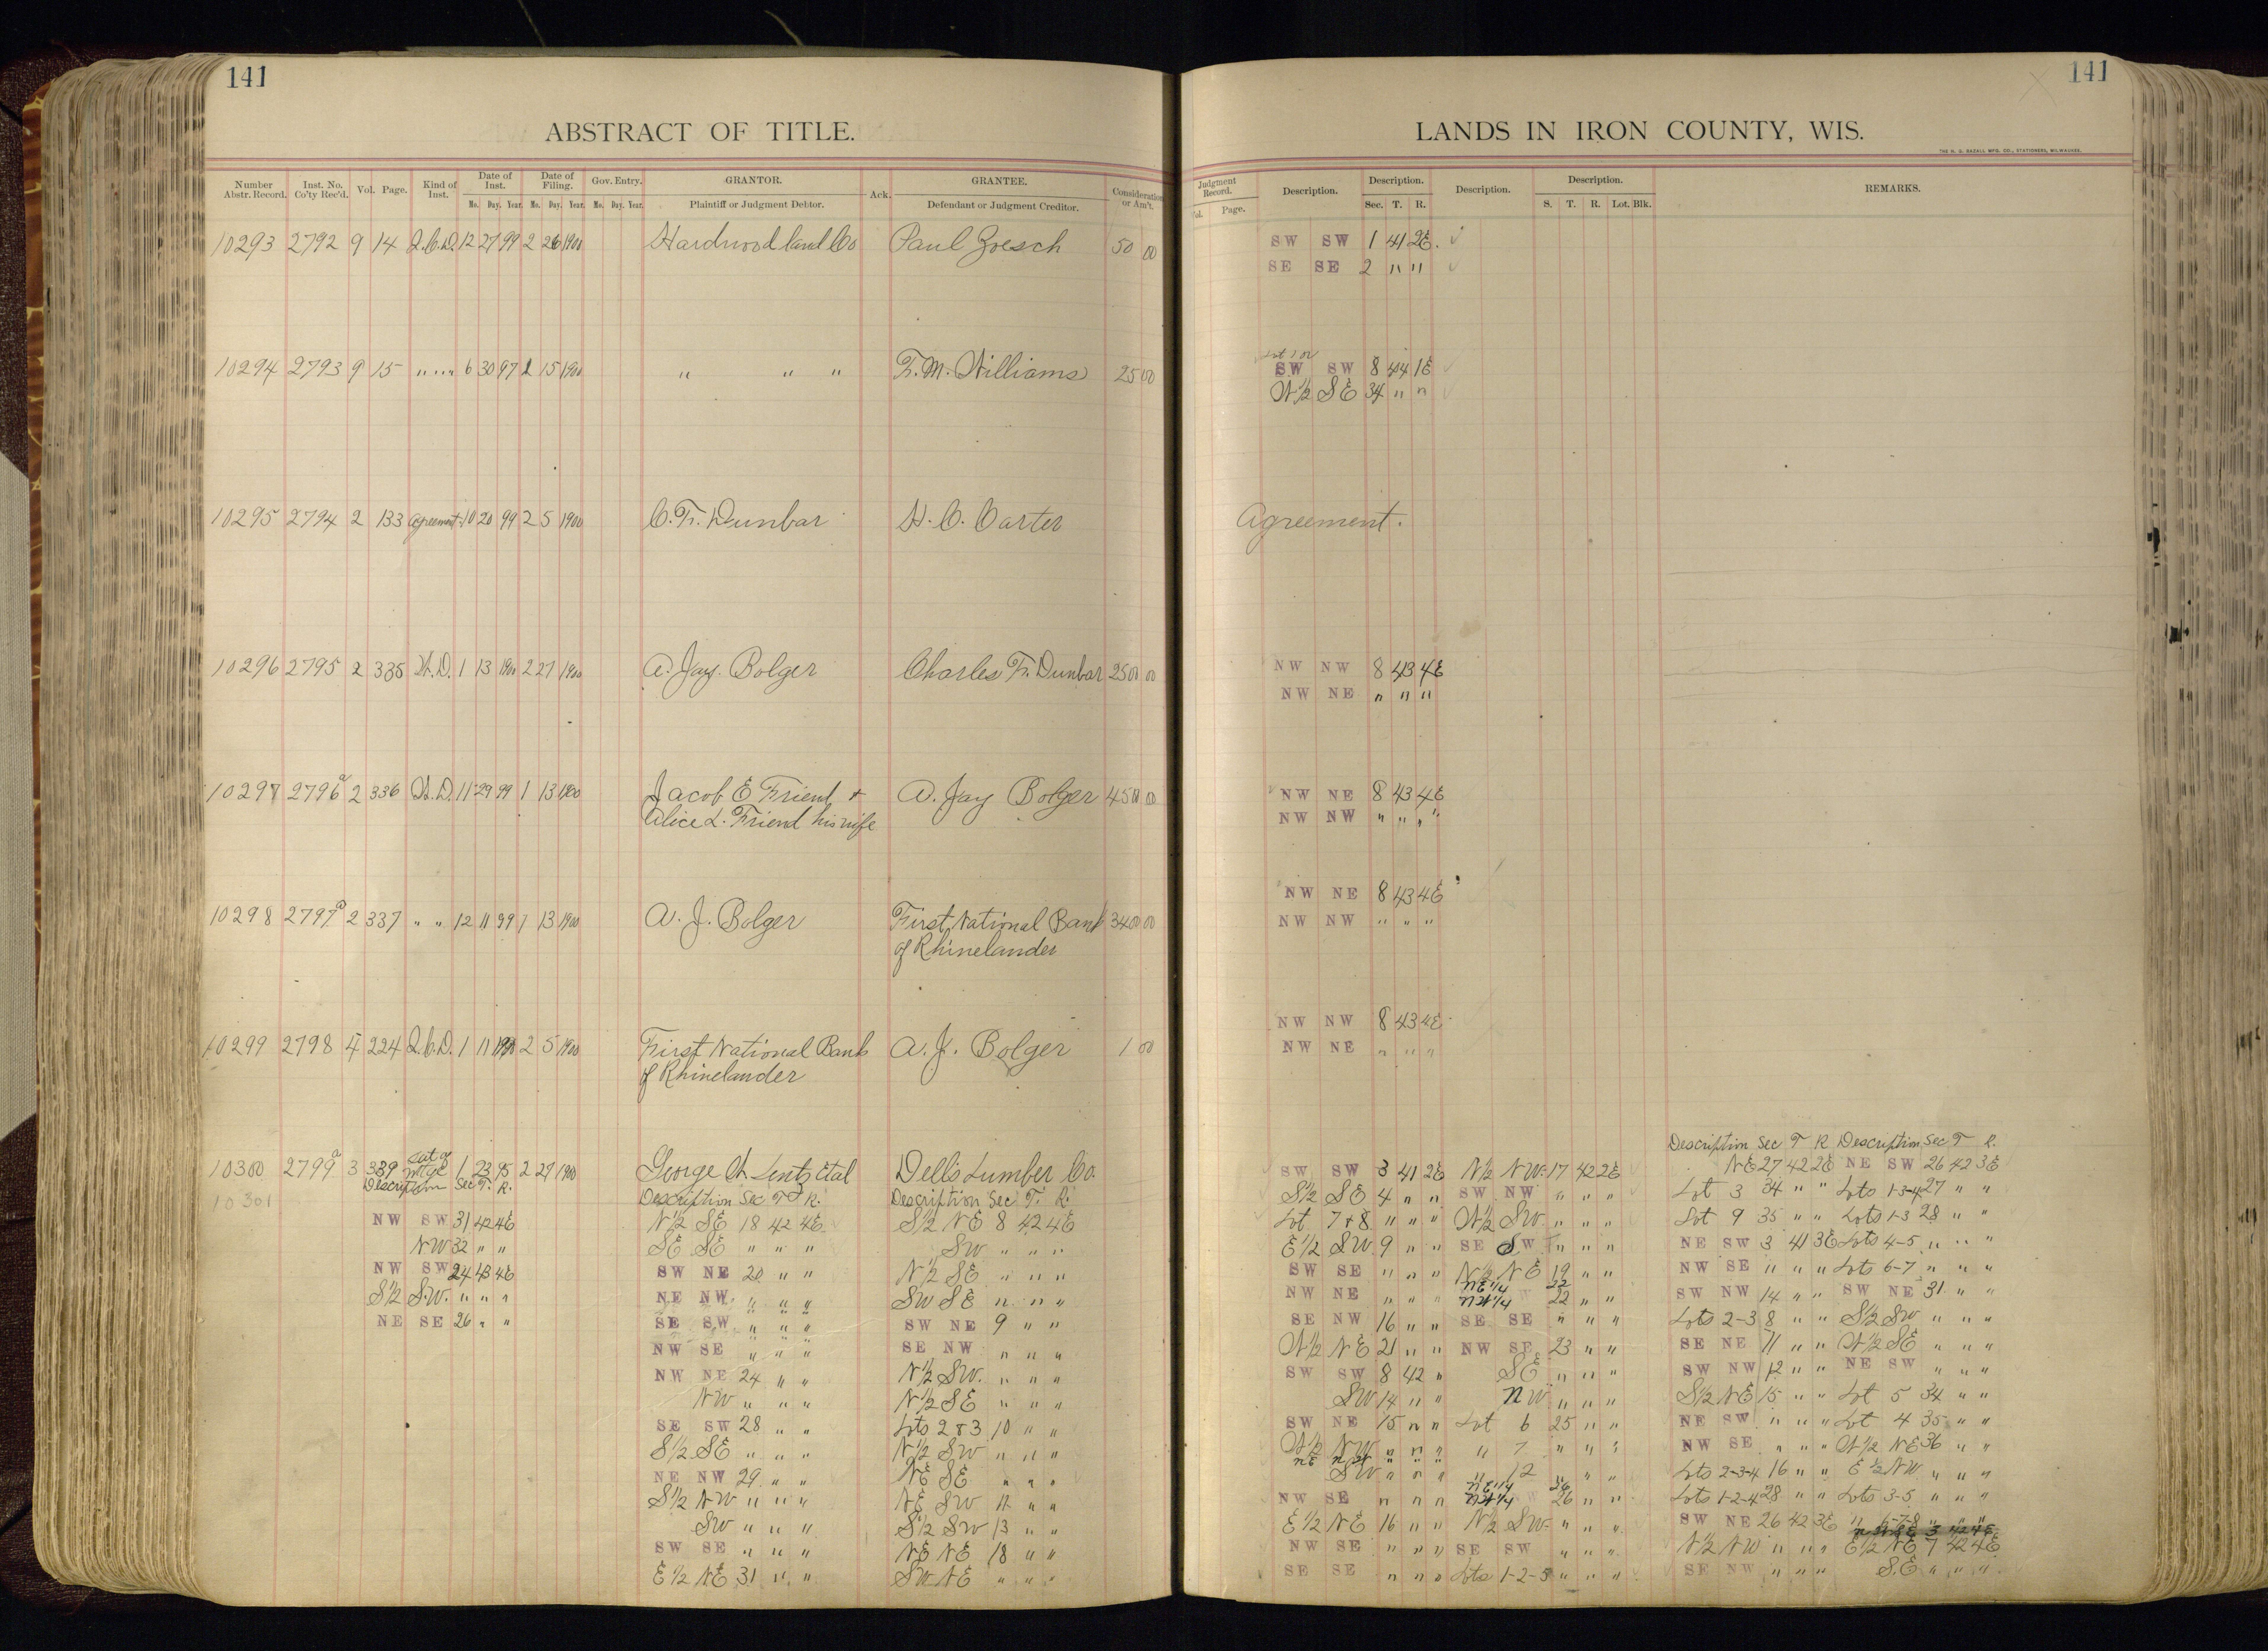 141
ABSTRACT OF TITLE.
Number Abstr. Record. Inst. No. Co'ty Rec'd. Vol. Page. Kind of Inst. Date of Inst. Date of Filing. Gov. Entry. GRANTOR. Ack. GRANTEE. Consideration or Am't.
Mo. Day. Year. Mo. Day. Year. Mo. Day. Year. Plaintiff or Judgment Debtor. Defendant or Judgment Creditor.
10293 2792 9 14 Q.C.D. 12 27 99 2 26 1900 Hardwood Land Co Paul Zoesch 50 00
10294 2793 9 15 " " " 6 30 97 2 15 1900 " " " F. M. Williams 25 00
10295 2794 2 133 Agreement 10 20 99 2 5 1900 C. F. Dunbar H. C. Carter
10296 2795 2 335 W.D. 1 13 1900 2 27 1900 A. Jay Bolger Charles F. Dunbar 2500 00
10297 2796 a 2 336 W.D. 11 29 99 1 13 1900 Jacob E Friend + A. Jay Bolger 450 00
Alice L. Friend his wife
10298 2797 a 2 337 " " 12 11 99 1 13 1900 A. J. Bolger First National Bank 3400 00
of Rhinelander
10299 2798 4 224 Q.C.D. 1 11 1900 2 5 1900 First National Bank A. J. Bolger 1 00
of Rhinelander
10300 2799 a 3 339 Mtge 1 23 95 2 27 1900 George W. Lentz Etal Dells Lumber Co.
10301 Description Sec T. R. Description Sec T R. Description Sec T. R.
NW SW 31 42 4E N½ SE 18 42 4E S½ NE 8 42 4E
NW 32 " " SE SE " " " SW " " "
NW SW 24 43 4E SW NE 20 " " N½ SE " " "
S½ S.W. " " " NE NW " " " SW SE " " "
NE SE 26 " " SE SW " " " SW NE 9 " "
NW SE " " " SE NW " " "
NW NE 24 " " N½ SW. " " "
NW " " " N½ SE " " "
SE SW 28 " " Lots 2 & 3 10 " "
S½ SE " " " N½ SW " " "
NE NW 29 " " NE SE " " "
S½ NW " " " NE SW 11 " "
SW " " " S½ SW 13 " "
SW SE " " " NE NE 18 " "
E½ NE 31 " " SW NE " " "
141
LANDS IN IRON COUNTY, WIS.
THE H. G. RAZALL MFG. CO., STATIONERS, MILWAUKEE.
Judgment Record. Description. Description. Description. Description. REMARKS.
Vol. Page. Sec. T. R. S. T. R. Lot. Blk.
SW SW 1 41 2E.
SE SE 2 " "
Lot 1 or
SW SW 8 44 1E
W½ SE 34 " "
Agreement.
NW NW 8 43 4E
NW NE " " "
NW NE 8 43 4E
NW NW " " "
NW NE 8 43 4E
NW NW " " "
NW NW 8 43 4E
NW NE " " "
Description Sec T R Description Sec T R.
NE 27 42 2E NE SW 26 42 3E
SW SW 3 41 2E N½ NW. 17 42 2E Lot 3 34 " " Lots 1-3-4 27 " "
S½ SE 4 " " SW NW " " " Lot 9 35 " " Lots 1-3 28 " "
Lot 7 & 8 " " " W½ SW. " " " NE SW 3 41 3E Lots 4-5 " " "
E½ SW 9 " " SE SW " " " NW SE " " " Lots 6-7 " " "
SW SE " " " N½ NE 19 " " SW NW 14 " " SW NE 31 " "
NW NE " " " NE¼ NW¼ 22 " " Lots 2-3 8 " " S½ SW " " "
SE NW 16 " " SE SE " " " SE NE 11 " " W½ SE " " "
W½ NE 21 " " NW SE 23 " " SW NW 12 " " NE SW " " "
SW SW 8 42 " SE " " " S½ NE 15 " " Lot 5 34 " "
SW 14 " " NW " " " NE SW " " " Lot 4 35 " "
SW NE 15 " " Lot 6 25 " " NW SE " " " W½ NE 36 " "
W½ NW " " " " 7 " " " Lots 2-3-4 16 " " E½ NW " " "
SW " " " " 12 " " " Lots 1-2-4 28 " " Lots 3-5 " " "
NW SE " " " NE¼ NW¼ 26 " " SW NE 26 42 3E " 6-7-8 " " "
E½ NE 16 " " N½ SW. " " " N½ NW " " " E½ NE 7 42 4E
NW SE " " " SE SW " " " SE NW " " " S.E " " "
SE SE " " " Lots 1-2-5 " " "